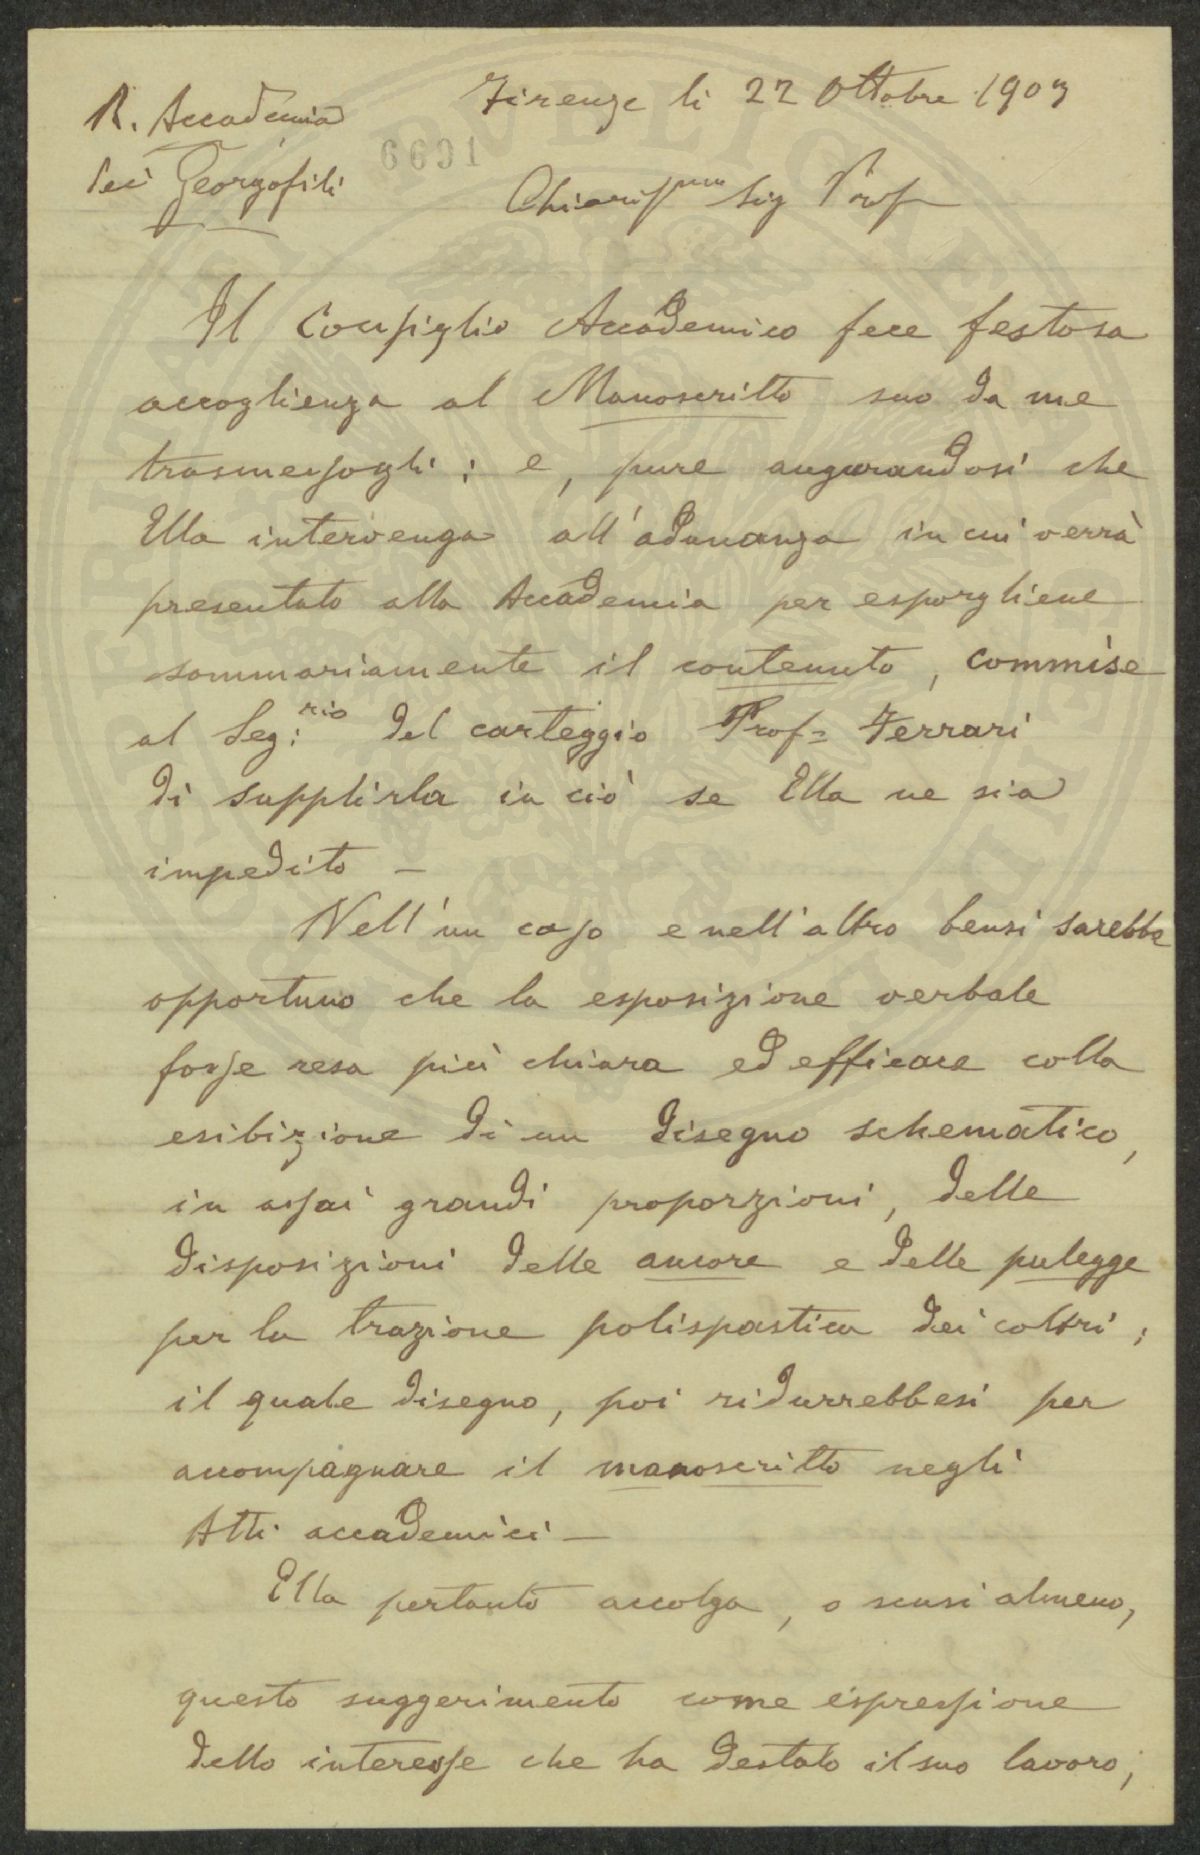 Firenze li 22 Ottobre 1903
R. Accademia
dei Georgofili
6691
Chiariss.mo Sig Prof
Il Consiglio Accademico fece festosa
accoglienza al Manoscritto suo da me
trasmessogli; e, pure augurandosi che
Ella intervenga all'adunanza in cui verrà
presentato alla Accademia per esporgliene
sommariamente il contenuto, commise
al Seg:rio del carteggio Prof= Ferrari
di supplirla in ciò se Ella ne sia
impedito —
Nell'un caso e nell'altro bensì sarebbe
opportuno che la esposizione verbale
fosse resa più chiara ed efficace colla
esibizione di un disegno schematico,
in assai grandi proporzioni, delle
disposizioni delle ancore e delle pulegge
per la trazione polispastica dei coltri;
il quale disegno, poi ridurrebbesi per
accompagnare il manoscritto negli
Atti accademici —
Ella pertanto accolga, o scusi almeno,
questo suggerimento come espressione
dello interesse che ha destato il suo lavoro;